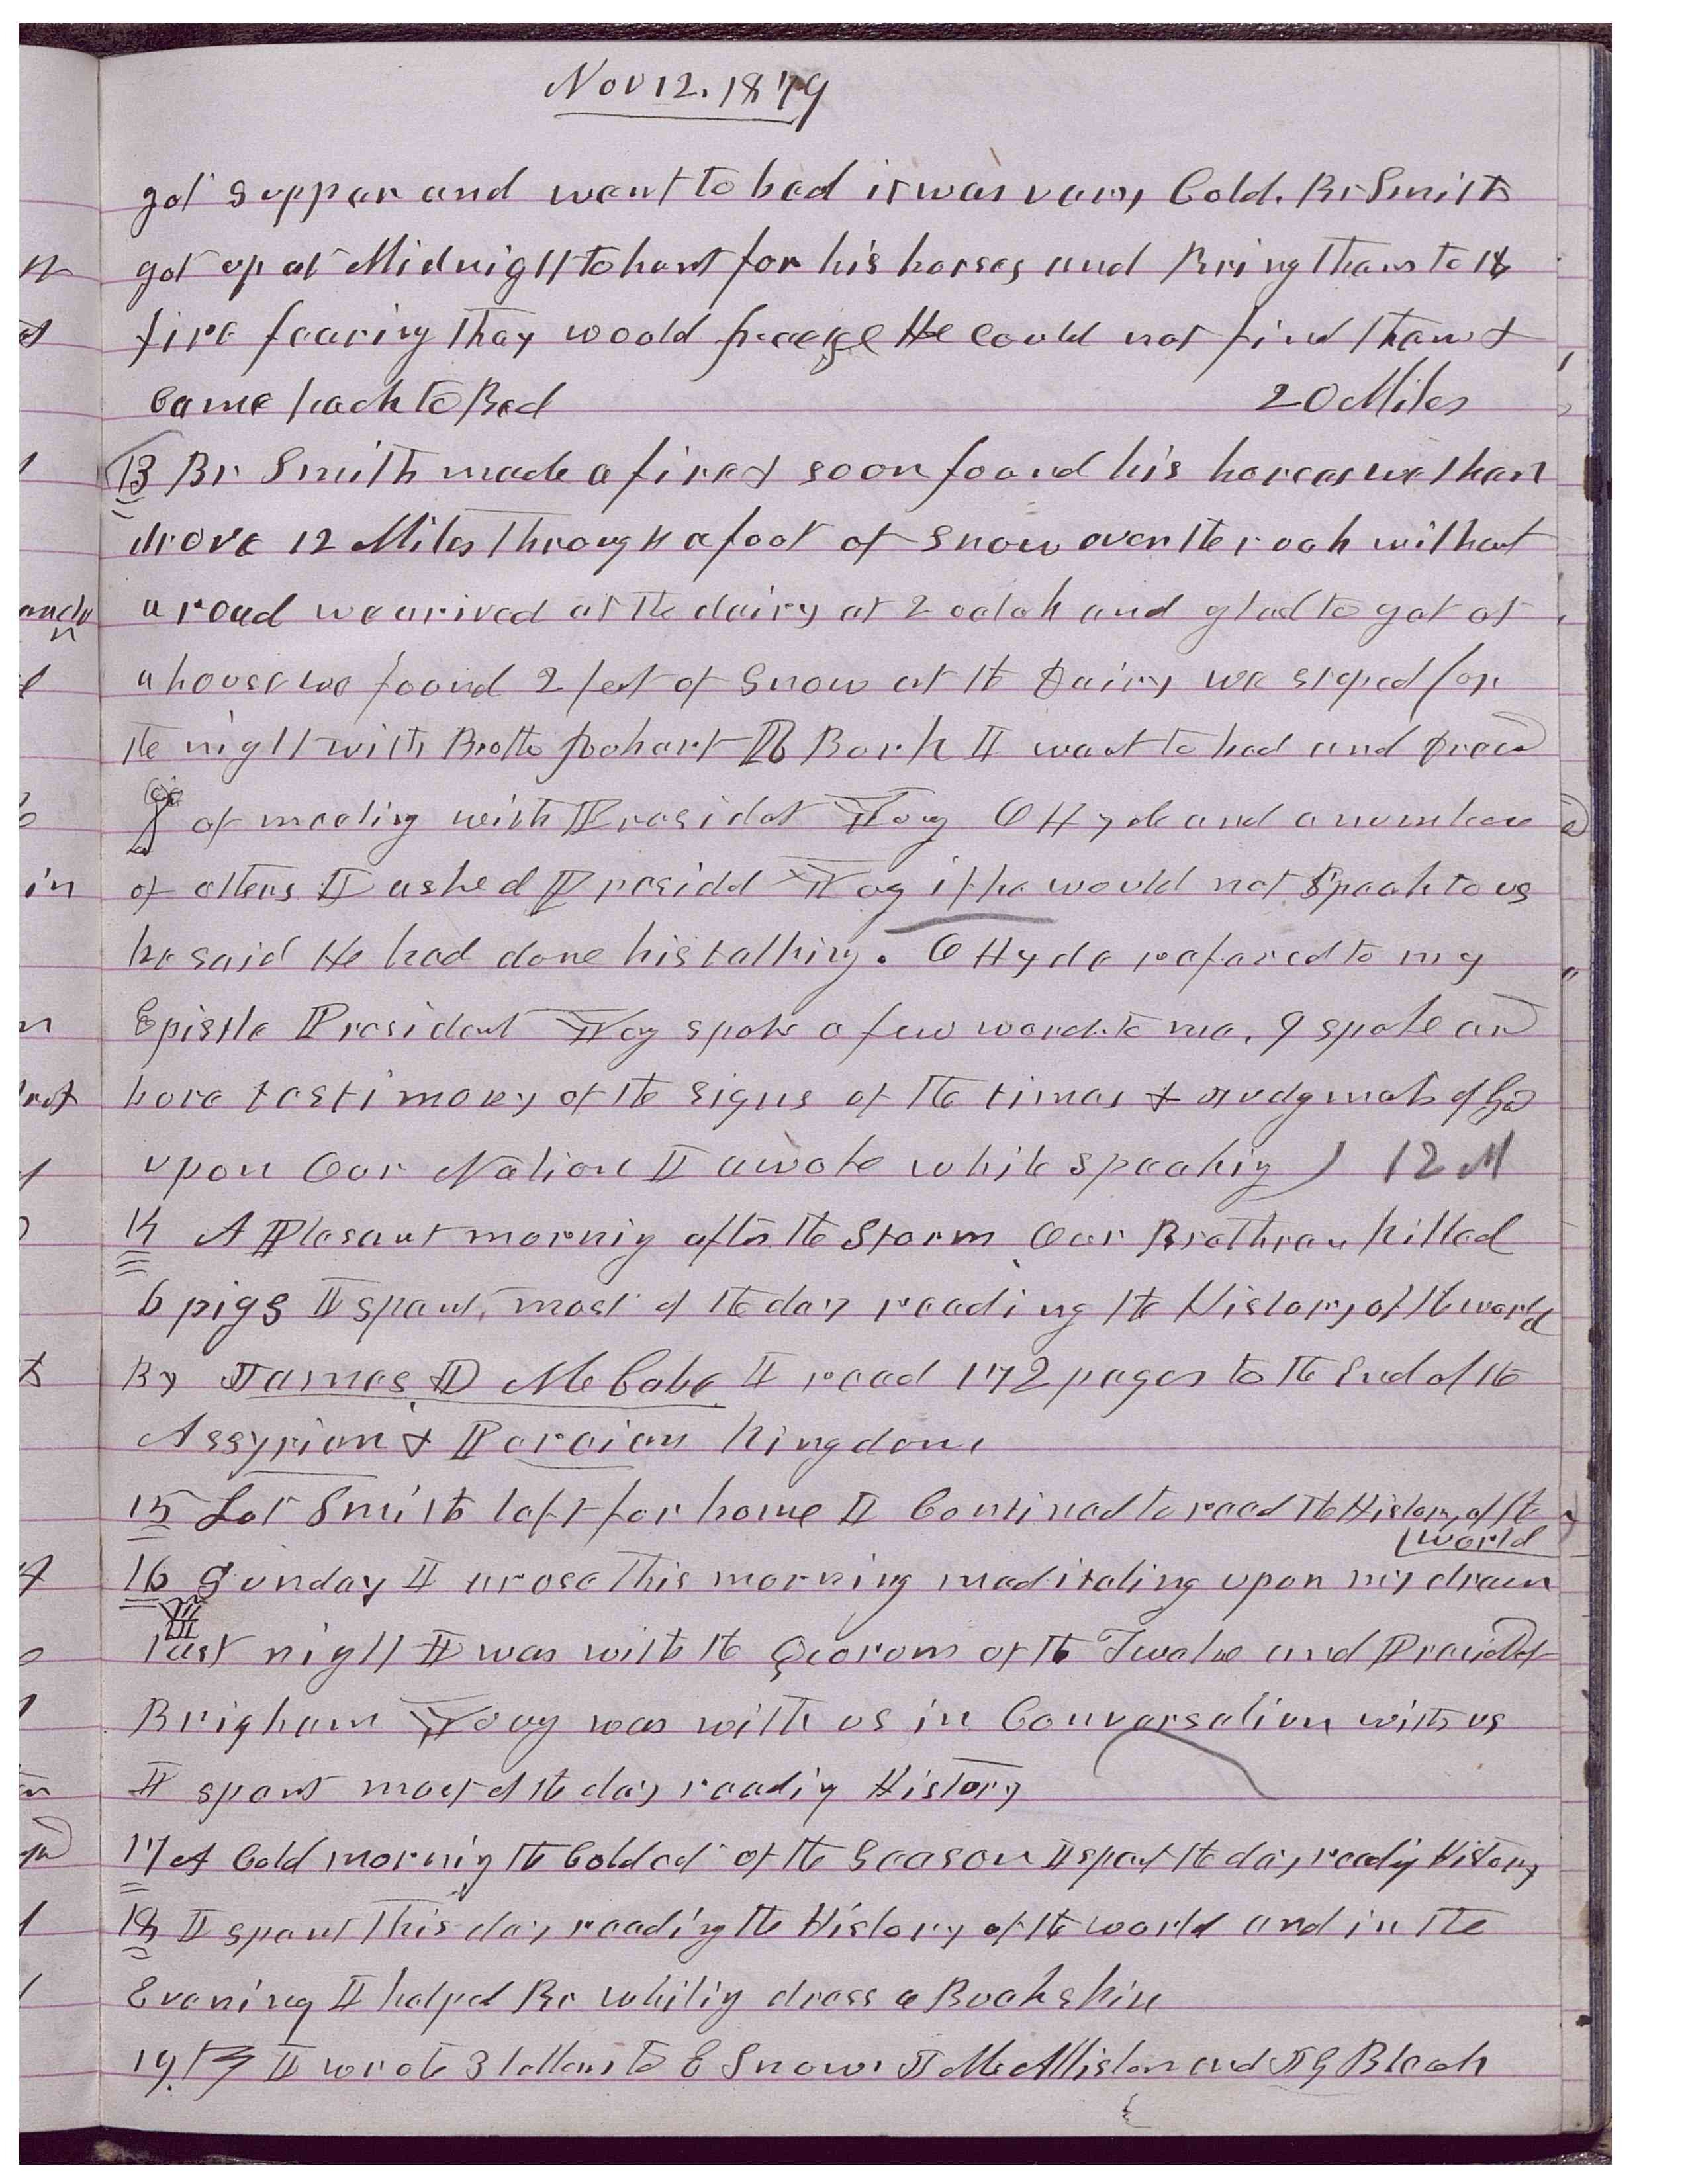 Nov 12. 1879
got supper and went to bed it was vary Cold. Br Smith
got up at Midnight to hunt for his horses and Bring them to the
fire fearing they would freeze He could not find them &
Came back to Bed 20 Miles
13 Br Smith made a fire & soon found his horses we then
drove 12 Miles through a foot of snow over the rock without
a road we arived at the dairy at 2 oclok and glad to get at
a house we found 2 feet of Snow at the Dairy we stoped for
the night with Brother Burk I went to bed and Dream
of meeting with President Yog O Hyde and a number
of others I asked Presidet Yog if he would not Speak to us
he said He had done his talking. O Hyde refered to my
Epistle President Yog spoke a few words to me. I spoke and
bore testimony of the signs of the times & Judgmets of God
upon Our Nation I awoke while speakig) 12 M
14 A Plesant mornig after the Storm Our Brethren killed
6 pigs I spent most of the day reading the History of the world
By James D McCabe I read 172 pages to the End of the
Assyrian & Percian Kingdom
15 Lot Smith left for home I Contined to read the History of the
world
16 Sunday I arose this morning meditating upon my dream
last night I was with the Quorum of the Twelve and Presidet
Brigham Youg was with us in Conversation with us
I spent most of the day readig History
17 A Cold mornig the Coldest of the Season I spent the day readig History
18 I spent this day reading the History of the world and in the
Evening I helped Br Whitig dress a Buckskin
19. I wrote 3 letters to E Snow. J McAllister and J G Bleak